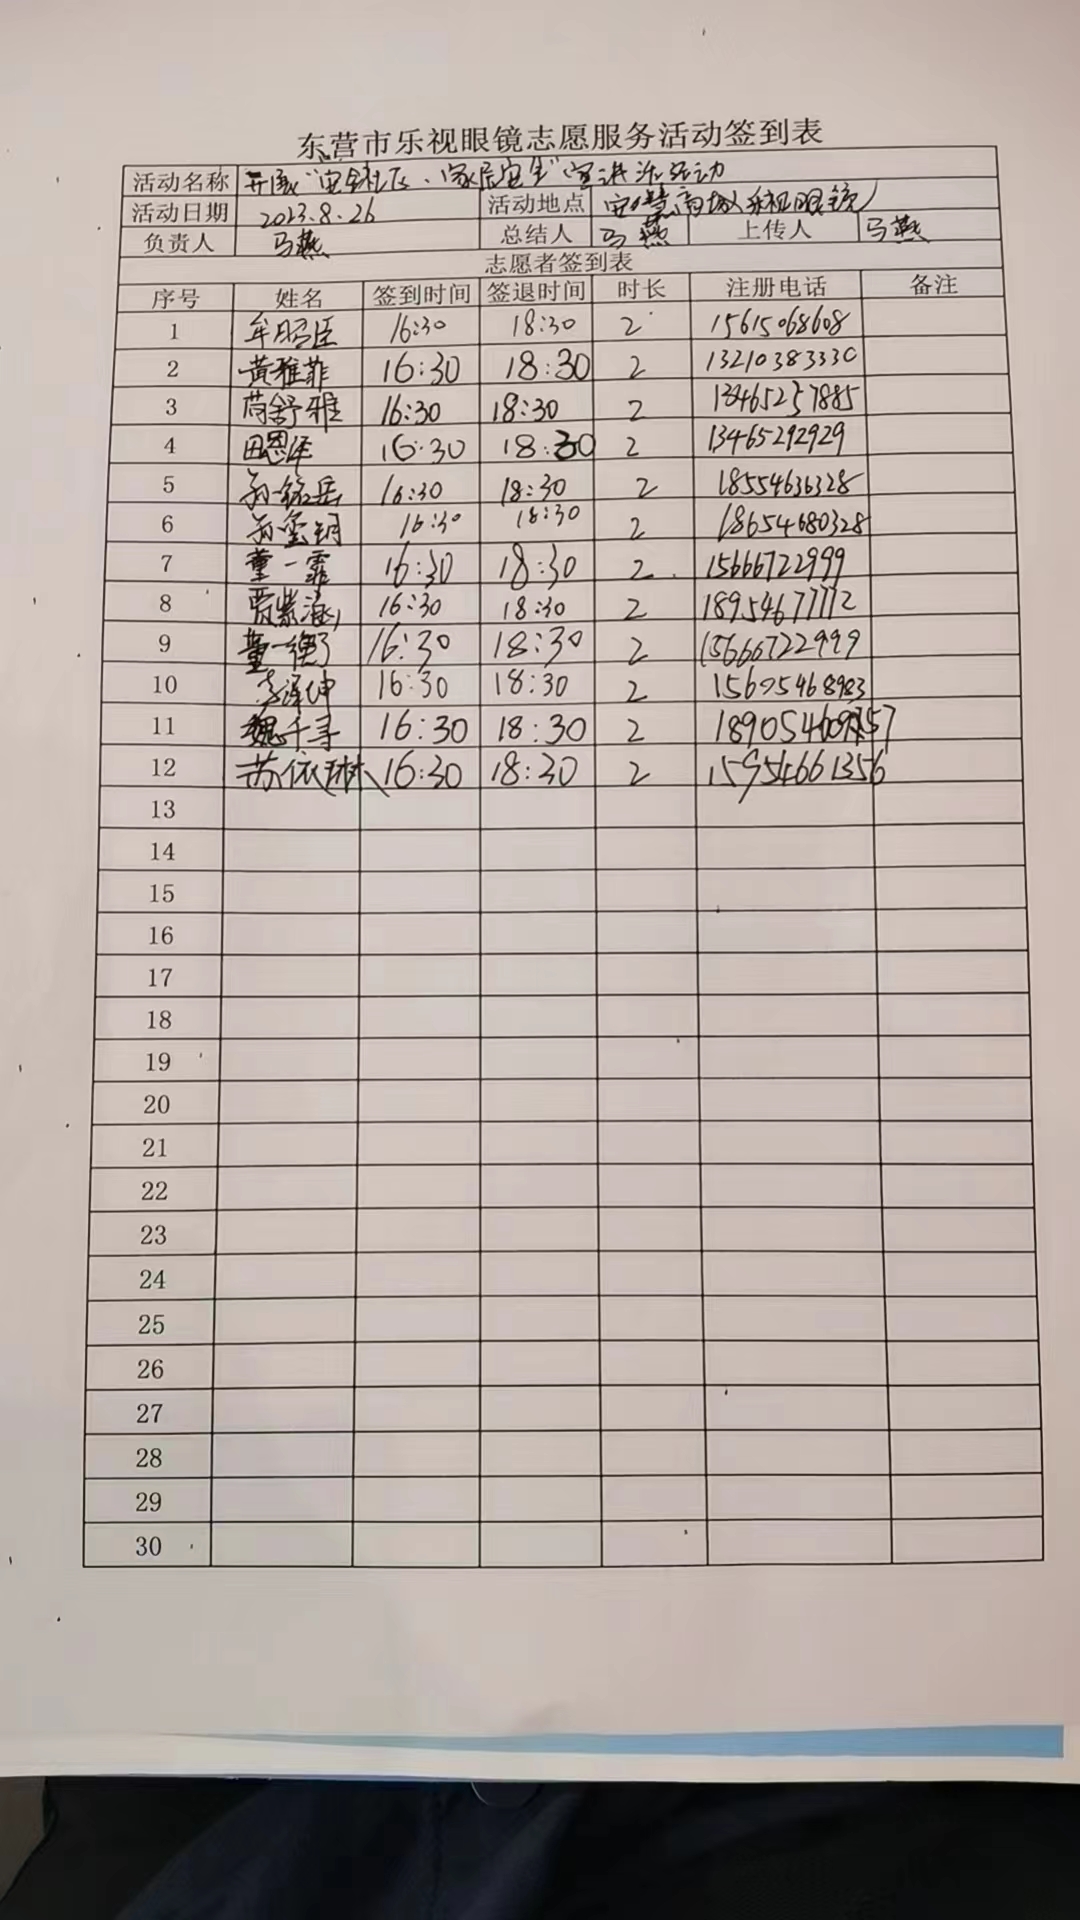 东营市乐视眼镜志愿服务活动签到表
活动名称 开展"安全社区、家居安全"宣讲活动
活动日期 2023.8.26 活动地点 商场 乐视眼镜
负责人 马燕 总结人 马燕 上传人 马燕
志愿者签到表
序号 姓名 签到时间 签退时间 时长 注册电话 备注
1 牟昭臣 16:30 18:30 2 15615068608
2 黄雅菲 16:30 18:30 2 13210383330
3 舒雅 16:30 18:30 2 13465257885
4 田恩泽 16:30 18:30 2 13465292929
5 孙铭岳 16:30 18:30 2 18554636328
6 孙玺明 16:30 18:30 2 18654680328
7 董一霏 16:30 18:30 2 15666722999
8 贾紫涵 16:30 18:30 2 18954677712
9 董一衡 16:30 18:30 2 15666722999
10 李泽坤 16:30 18:30 2
11 魏千寻 16:30 18:30 2
12 苏依琳 16:30 18:30 2 15954661356
13
14
15
16
17
18
19
20
21
22
23
24
25
26
27
28
29
30